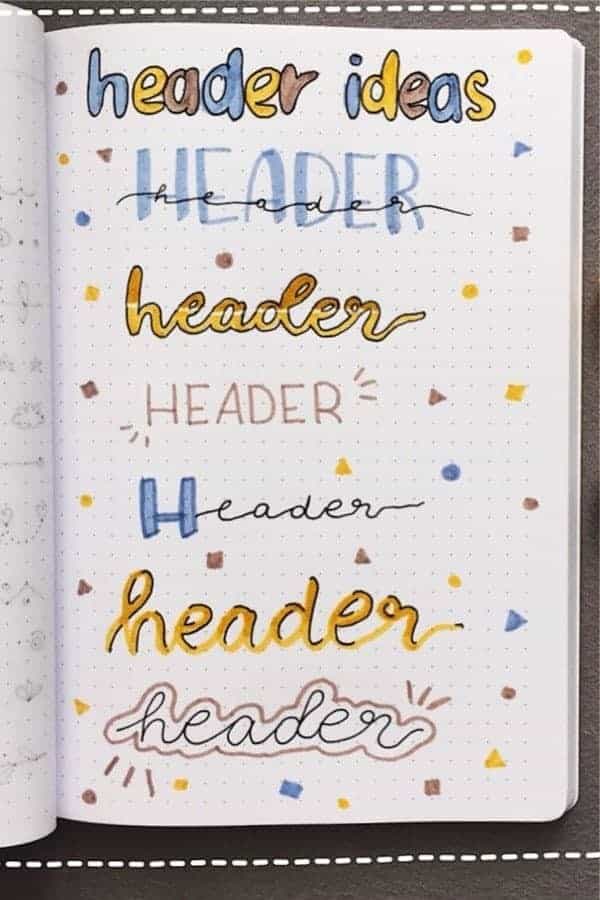 header ideas
HEADER
header
header
HEADER
Header
header
header